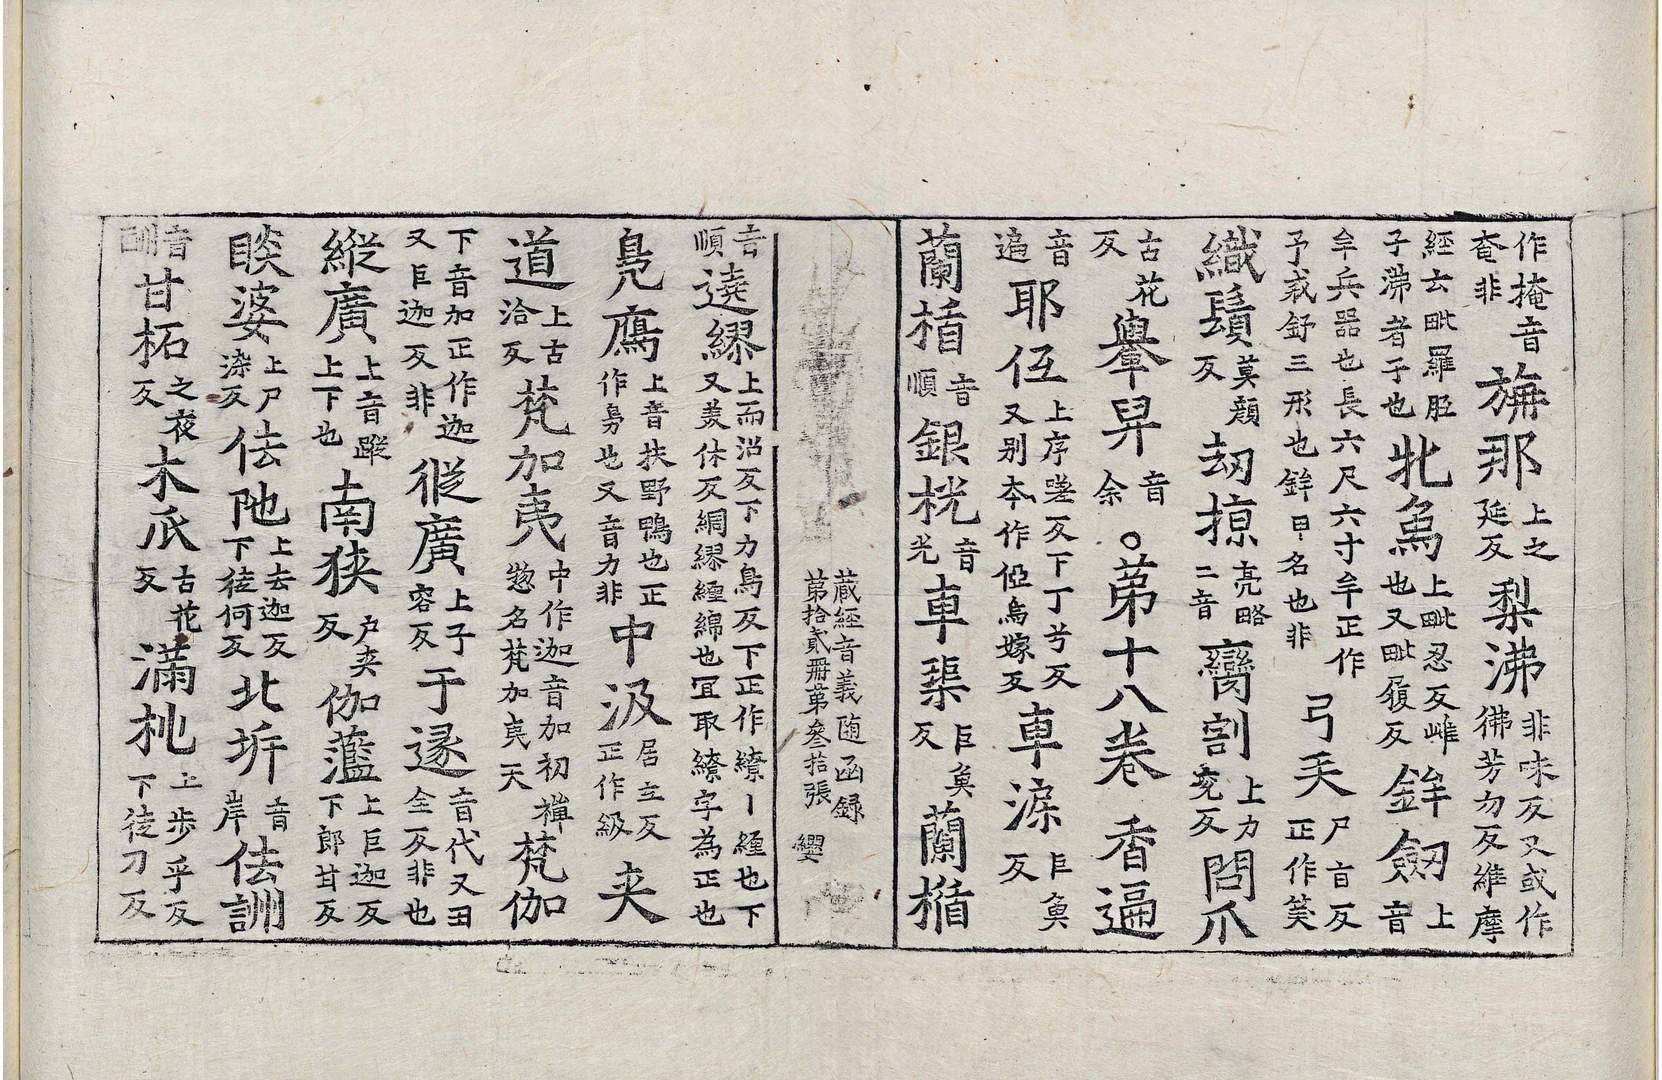 作掩音
奄非
旃那
上之
延反
梨沸
非味反又或作
彿芳勿反維摩
經云毗羅胝
子沸者子也
牝為
上毗忍反雌
也又毗履反
鉾劔
上
音
牟兵器也長六尺六寸牟正作
予戎舒三形也鉾甲名也非
弓矢
尸旨反
正作笶
織鬚
莫顏
反
刼掠
亮略
二音
臠割
上力
兖反
問爪
古花
反
轝舁
音
余
○苐十八卷 香遍
音
遍
耶㐸
上序嗟反下丁兮反
又别夲作俹烏嫁反
車渁
巨魚
反
蘭楯
音
順
銀桄
音
光
車渠
巨魚
反
蘭楯
蔵經音義随函録
苐拾貳册苐叄拾張 纓
音
順
遶繆
上而沼反下力鳥反下正作繚丨纏也下
又美休反綢繆纏綿也冝取繚字為正也
鳧鴈
上音扶野鴨也正
作鳬也又音力非
中汲
居立反
正作級
夾
道
上古
洽反
梵加夷
中作迦音加初禅
惣名梵加夷天
梵伽
下音加正作迦
又巨迦反非
從廣
上子
容反
于逯
音代又田
全反非也
縱廣
上音蹤
上下也
南狹
户夾
反
伽藍
上巨迦反
下郎甘反
睒婆
上尸
染反
佉陁
上去迦反
下徒何反
北㘸
音
岸
佉訓
音
訓
甘柘
之夜
反
木𤓰
古花
反
滿桃
上步乎反
下徒刀反